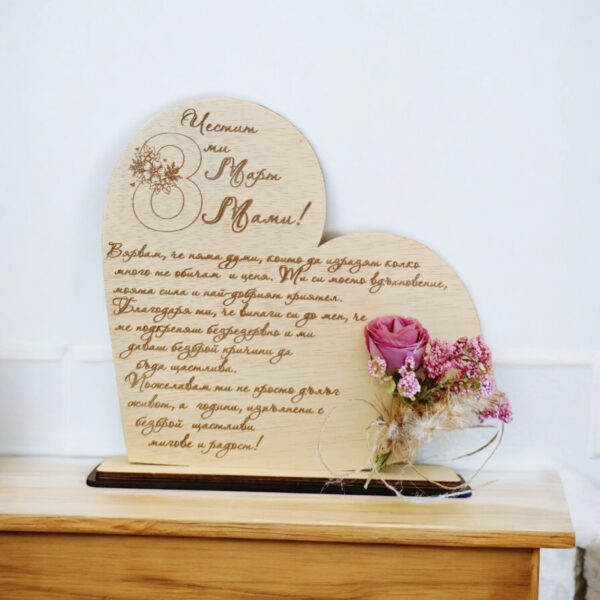 Честит
8 ми
Март
Мами!
Вярвам, че няма думи, които да изразят колко
много те обичам и ценя. Ти си моето вдъхновение,
моята сила и най-добрият приятел.
Благодаря ти, че винаги си до мен, че
ме подкрепяш безрезервно и ми
даваш безброй причини да
бъда щастлива.
Пожелавам ти не просто дълъг
живот, а години, изпълнени с
безброй щастливи
мигове и радост!